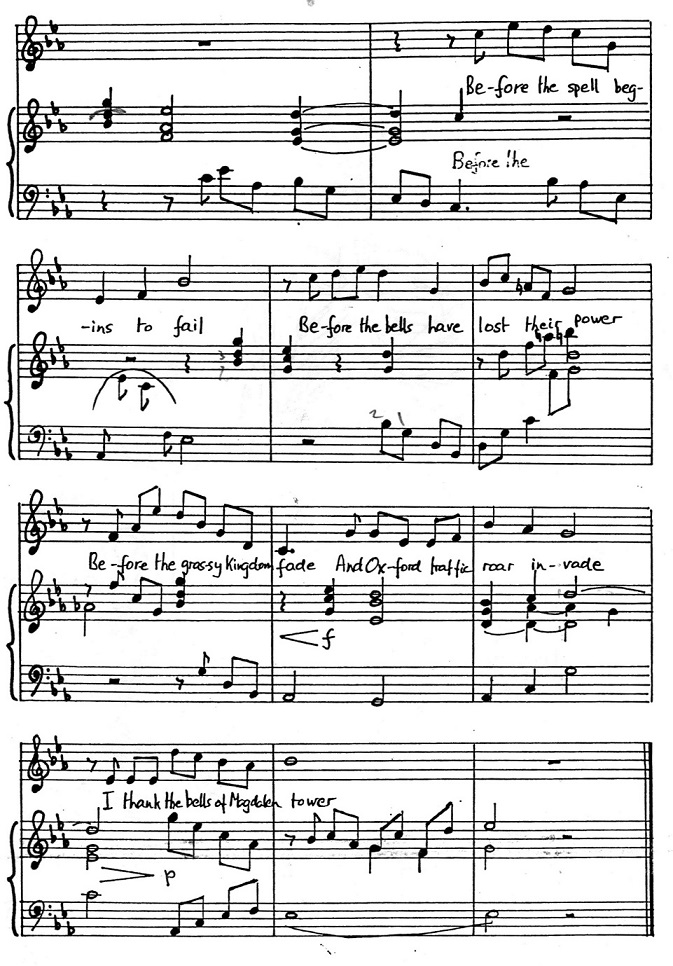 Be-fore the spell beg-
Before the
-ins to fail Be-fore the bells have lost their power
2 1
Be-fore the gras-sy kingdom fade And Ox-ford traffic roar in-vade
f
I thank the bells of Magdalen tower
p